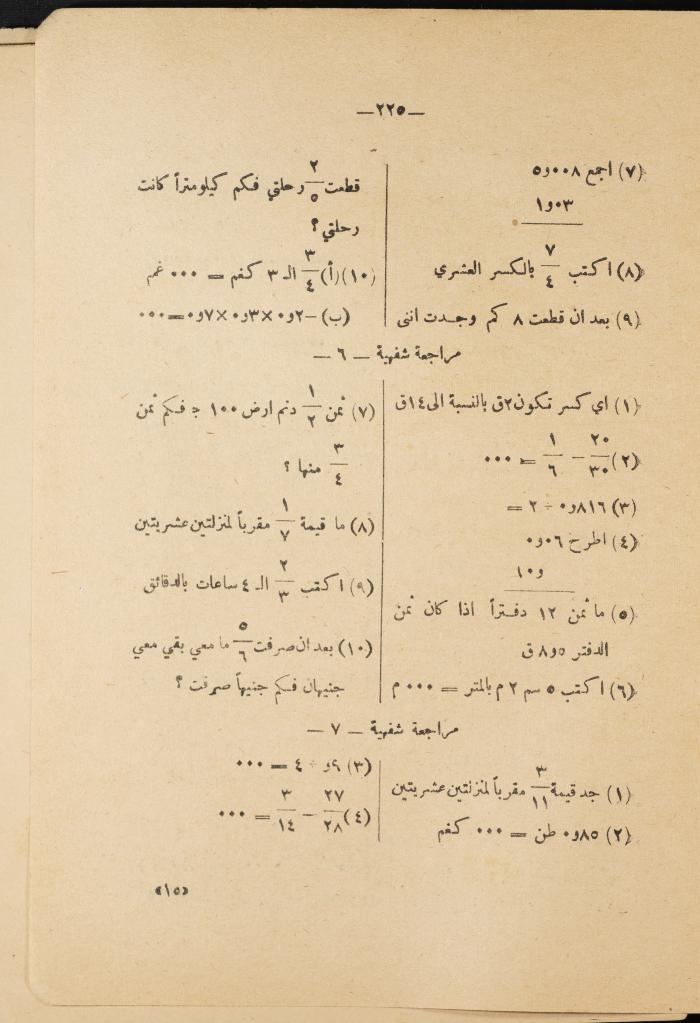 —٢٢٥—
(٧) اجمع ٠٠٨ر٥
٠٣ر١
(٨) اكتب ٧/٤ بالكسر العشري
(٩) بعد ان قطعت ٨ كم وجدت انني
قطعت ٢/٥ رحلتي فكم كيلومتراً كانت
رحلتي ؟
(١٠) (أ) ٣/٤ الـ ٣ كغم = ٠٠٠ غم
(ب) –٢ر٠ × ٣ر٠ × ٧ر٠ = ٠٠٠
مراجعة شفهية — ٦ —
(١) اي كسر تكون ٢ق بالنسبة الى ١٤ق
(٢) ٢٠/٣٠ – ١/٦ = ٠٠٠
(٣) ٨١٦ر٠ ÷ ٢ =
(٤) اطرح ٠٦ر٠
ر١٠
(٥) ما ثمن ١٢ دفتراً اذا كان ثمن
الدفتر ٥ر٨ ق
(٦) اكتب ٥ سم ٢ م بالمتر = ٠٠٠ م
(٧) ثمن ١/٢ دنم ارض ١٠٠ ج فكم ثمن
٣/٤ منها ؟
(٨) ما قيمة ١/٧ مقرباً لمنزلتين عشريتين
(٩) اكتب ٢/٣ الـ ٤ ساعات بالدقائق
(١٠) بعد ان صرفت ٥/٦ ما معي بقي معي
جنيهان فكم جنيهاً صرفت ؟
مراجعة شفهية — ٧ —
(١) جد قيمة ٣/١١ مقرباً لمنزلتين عشريتين
(٢) ٨٥ر٠ طن = ٠٠٠ كغم
(٣) ÷ ٤ = ٠٠٠
(٤) ٢٧/٢٨ – ٣/١٤ = ٠٠٠
«١٥»